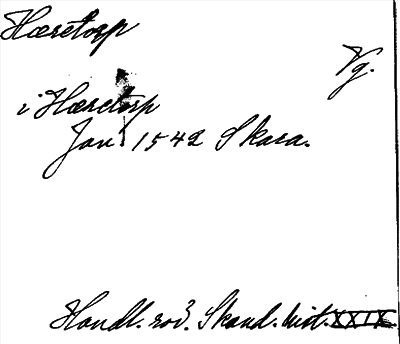 Hæretorp
Vg.
i Hæretorp
Jan 1542 Skara.
Handl. rör. Skand. hist. XXIX